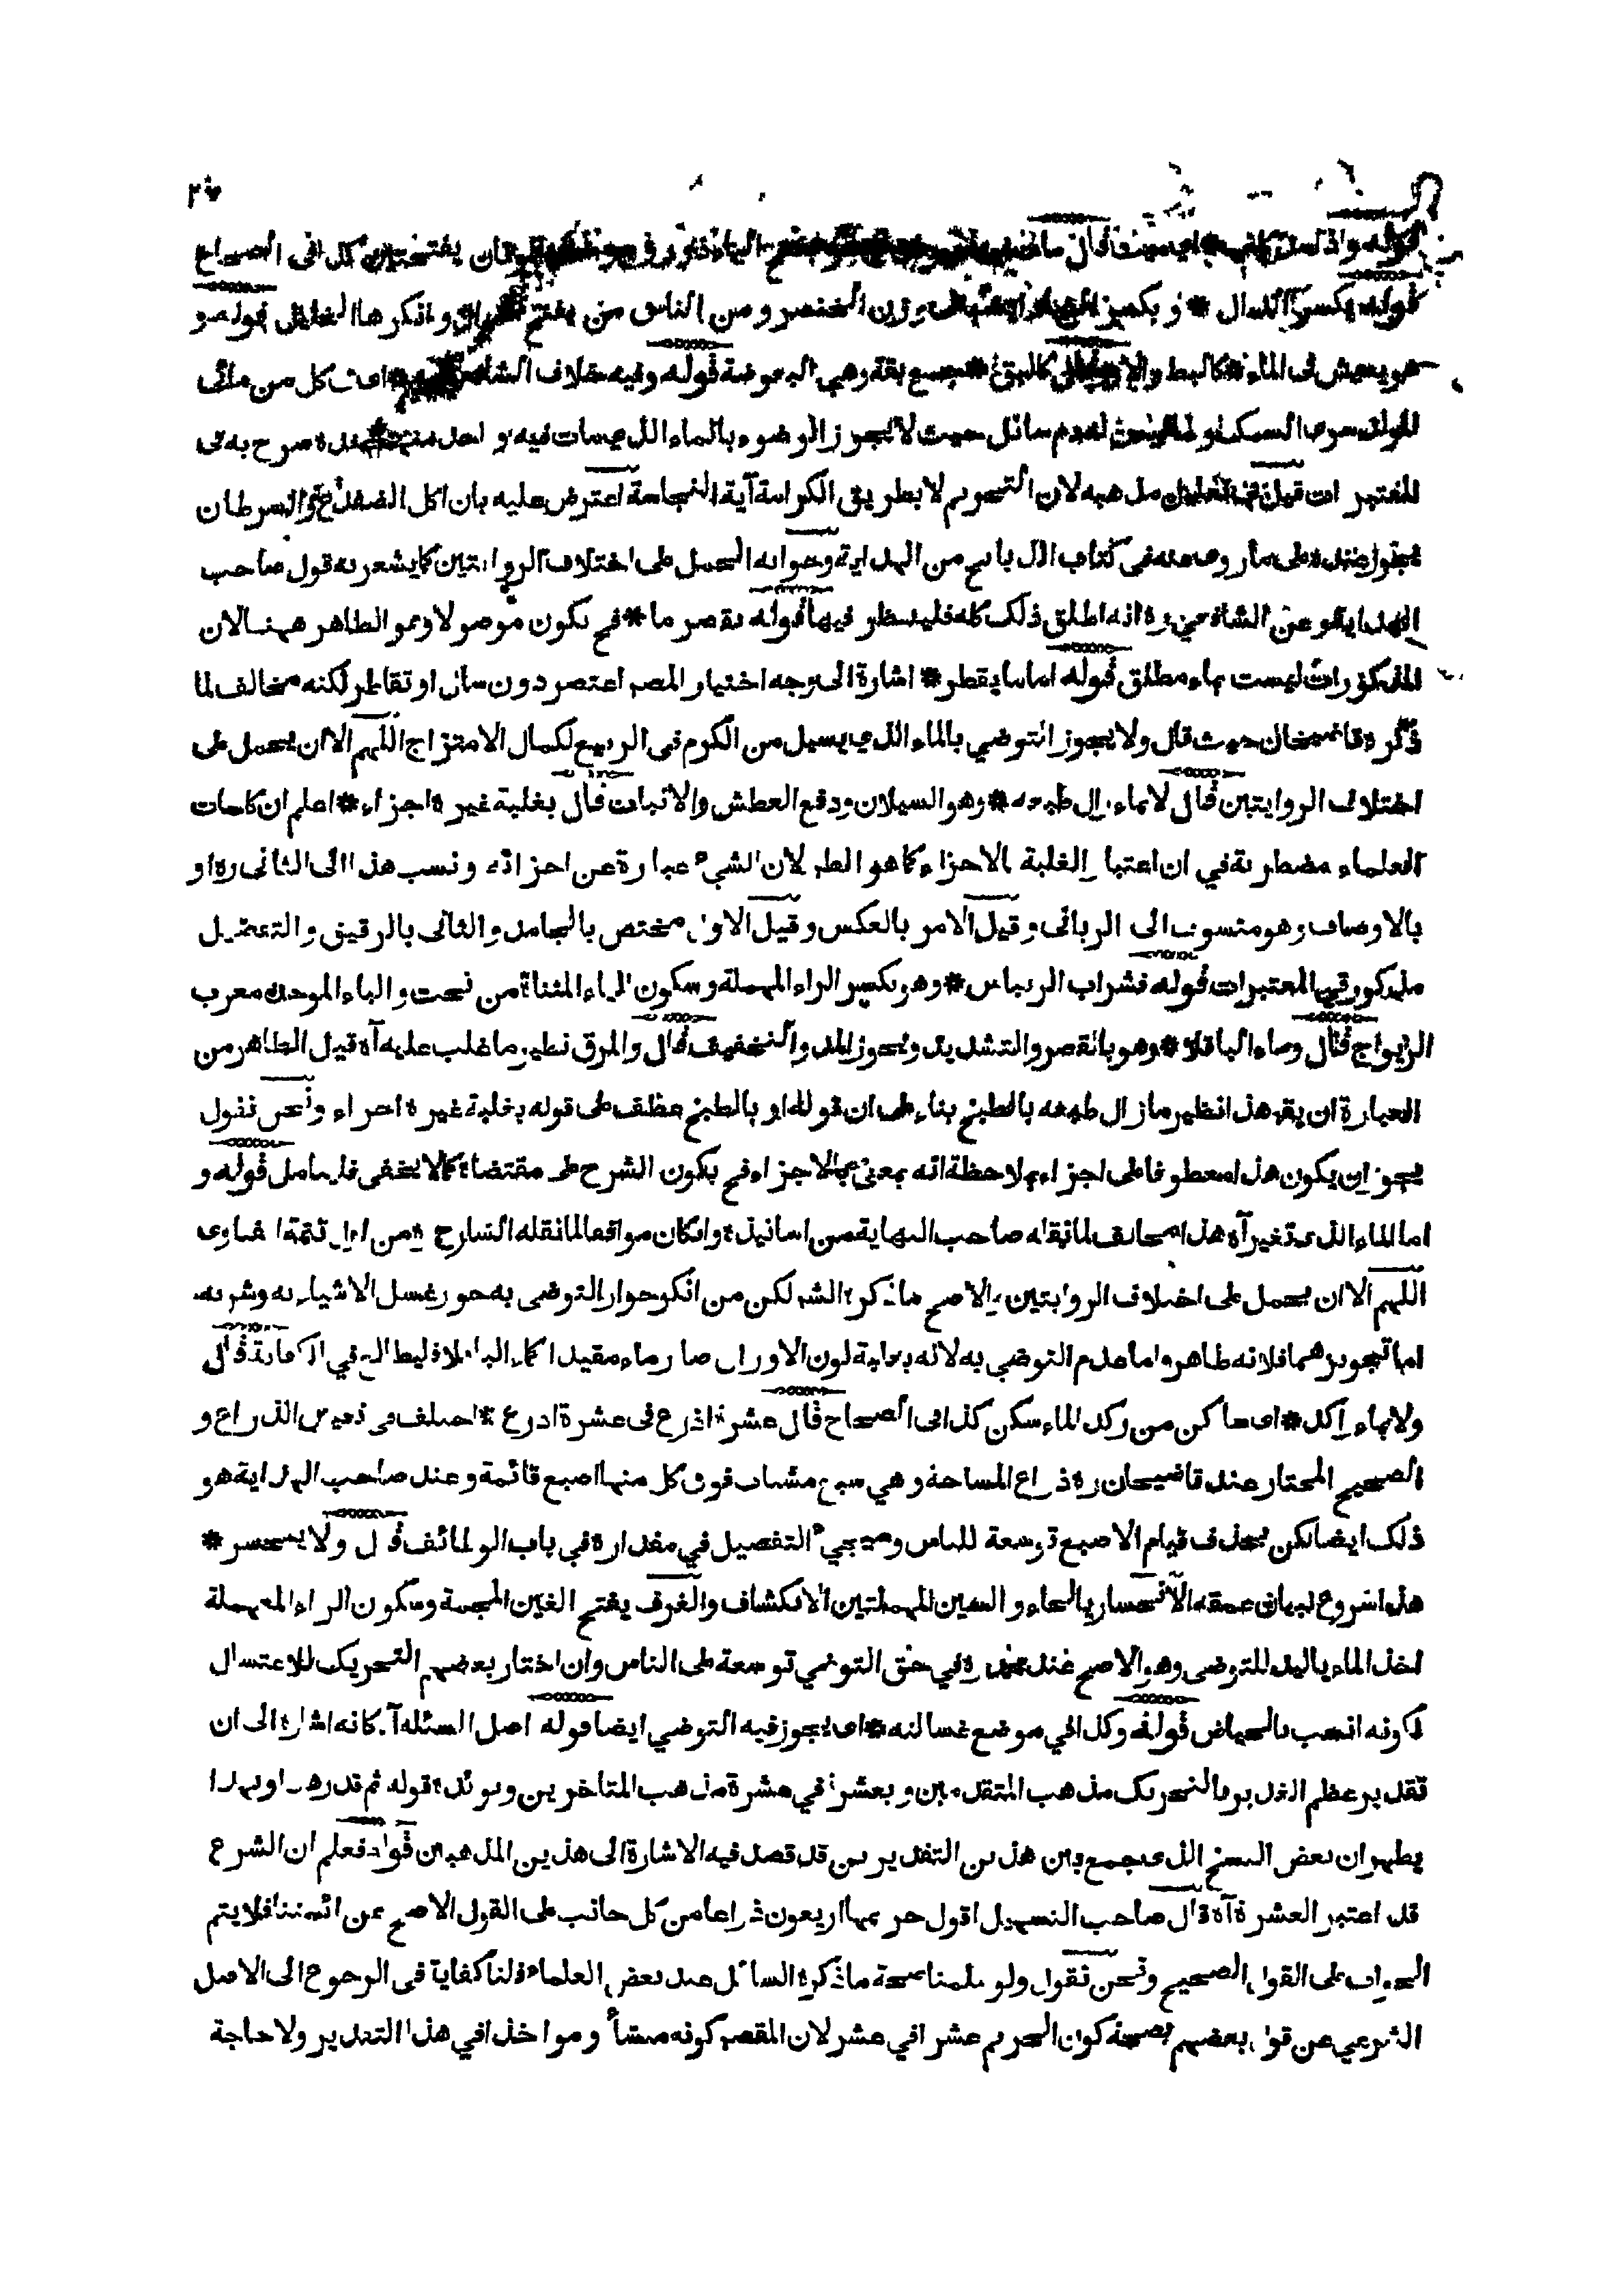 قوله قال الياء فوقان يفتحتين كذا في الصحاح
قوله بكسر الدال * وبكسر وزن الخنصر ومن الناس من يفتح وانكرها الخليل قوله و
هو يعيش في الماء * كالبط قوله كالبق * جمع بقة وهي البعوضة قوله وفيه خلاف الشافعي * اى في كل من مائى
المولد سوى السمك له دم سائل حيث لا يجوز الوضوء بالماء الذي مات فيه واحد منهما عنده صرح به في
المعتبر ات قيل مذهبه لان التحريم لا بطريق الكرامة آية النجاسة اعترض عليه بان اكل الضفدع والسرطان
يجوز عنده على ما روى عنه في كتاب الذبايح من الهداية وجوابه الحمل على اختلاف الروايتين كما يشعر به قول صاحب
الهداية وعن الشافعي ره انه اطلق ذلك كله فلينظر فيها قوله بقصر ما * فح يكون موصولا وهو الظاهر ههنا لان
المذكورات ليست بماء مطلق قوله اما ما يقطر * اشارة الى وجه اختيار المصـ اعتصر دون سال او تقاطر لكنه مخالف لما
ذكره قاضيخان حيث قال ولا يجوز التوضي بالماء الذي يسيل من الكرم في الربيع لكمال الامتزاج اللهم الا ان يحمل على
اختلاف الروايتين قال لا بماء زال طبعه * وهو السيلان ودفع العطش والانبات قال بغلبة غيره اجزاء * اعلم ان كلمات
العلماء مضطربة في ان اعتبار الغلبة بالاجزاء كما هو الظ لان الشيء عبارة عن اجزائه ونسب هذا الى الثانى ره او
بالاوصاف وهو منسوب الى الربانى وقيل الامر بالعكس وقيل الاول مختص بالجامد والثانى بالرقيق والتفصيل
مذكور في المعتبرات قوله فشراب الريباس * وهو بكسر الراء المهملة وسكون الياء المثناة من تحت والباء الموحدة معرب
الريواج قال وماء الباقلا * وهو بالقصر والتشديد ويجوز المد والتخفيف قال والمرق نظير ما غلب عليه آه قيل الظاهر من
العبارة ان يقـ هذا نظير ما زال طبعه بالطبخ بناء على ان قوله او بالطبخ عطف على قوله بغلبة غيره اجزاء ونحن نقول
يجوز ان يكون هذا معطوفا على اجزاء بملاحظة انه بمعنى بالاجزاء فح يكون الشرح على مقتضاه كما لا يخفى فليتامل قوله و
اما الماء الذى تغير آه هذا مخالف لما نقله صاحب النهاية من اساتيذه وان كان موافقا لما نقله الشارح ره من تتمة الفتاوى
اللهم الا ان يحمل على اختلاف الروايتين والاصح ما ذكره الشـ لكن من انكر جواز التوضى به جوز غسل الاشياء به وشربه
اما تجويزهما فلانه طاهر واما عدم التوضي به لانه بغلبة لون الاوراق صار ماء مقيدا كماء الباقلا فليطالع في الكفاية قال
ولا بماء راكد * اى ساكن من ركد الماء سكن كذا في الصحاح قال عشرة اذرع في عشرة اذرع * اختلف في تعيين الذراع و
الصحيح المختار عند قاضيخان ره ذراع المساحة وهي سبع مشتات فوق كل منها اصبع قائمة وعند صاحب الهداية هو
ذلك ايضا لكن بحذف قيام الاصبع توسعة للناس وسيجيء التفصيل في مقداره في باب الوظائف قال ولا ينحسر *
هذا شروع لبيان عمقه الانحسار بالحاء والسين المهملتين الانكشاف والغرف يفتح الغين المعجمة وسكون الراء المهملة
اخذ الماء باليد للتوضى وهو الاصح عند محمد ره في حق التوضي توسعة على الناس وان اختار بعضهم التحريك للاغتسال
لكونه انسب بالحياض قوله وكذا في موضع غسالته * اى يجوز فيه التوضي ايضا قوله اصل المسئلة آه كانه اشارة الى ان
تقدير عظم الغدير بالتحريك مذهب المتقدمين وبعشرة في عشرة مذهب المتاخرين ويؤيده قوله ثم قدر هـ او بهذا
يظهر ان بعض النسخ الذى جمع بين هذين التقديرين قد قصد فيه الاشارة الى هذين المذهبين قوله فعلم ان الشرع
قد اعتبر العشرة آه قال صاحب التسهيل اقول حريمها اربعون ذراعا من كل جانب على القول الاصح عن ائمتنا فلا يتم
الجواب على القول الصحيح ونحن نقول ولو سلمنا صحة ما ذكره السائل عند بعض العلماء فلنا كفاية في الرجوع الى الاصل
الشرعي عن قول بعضهم بصحة كون الحريم عشرا في عشر لان المقصـ كونه منشأ وموا خذا في هذا التقدير ولا حاجة